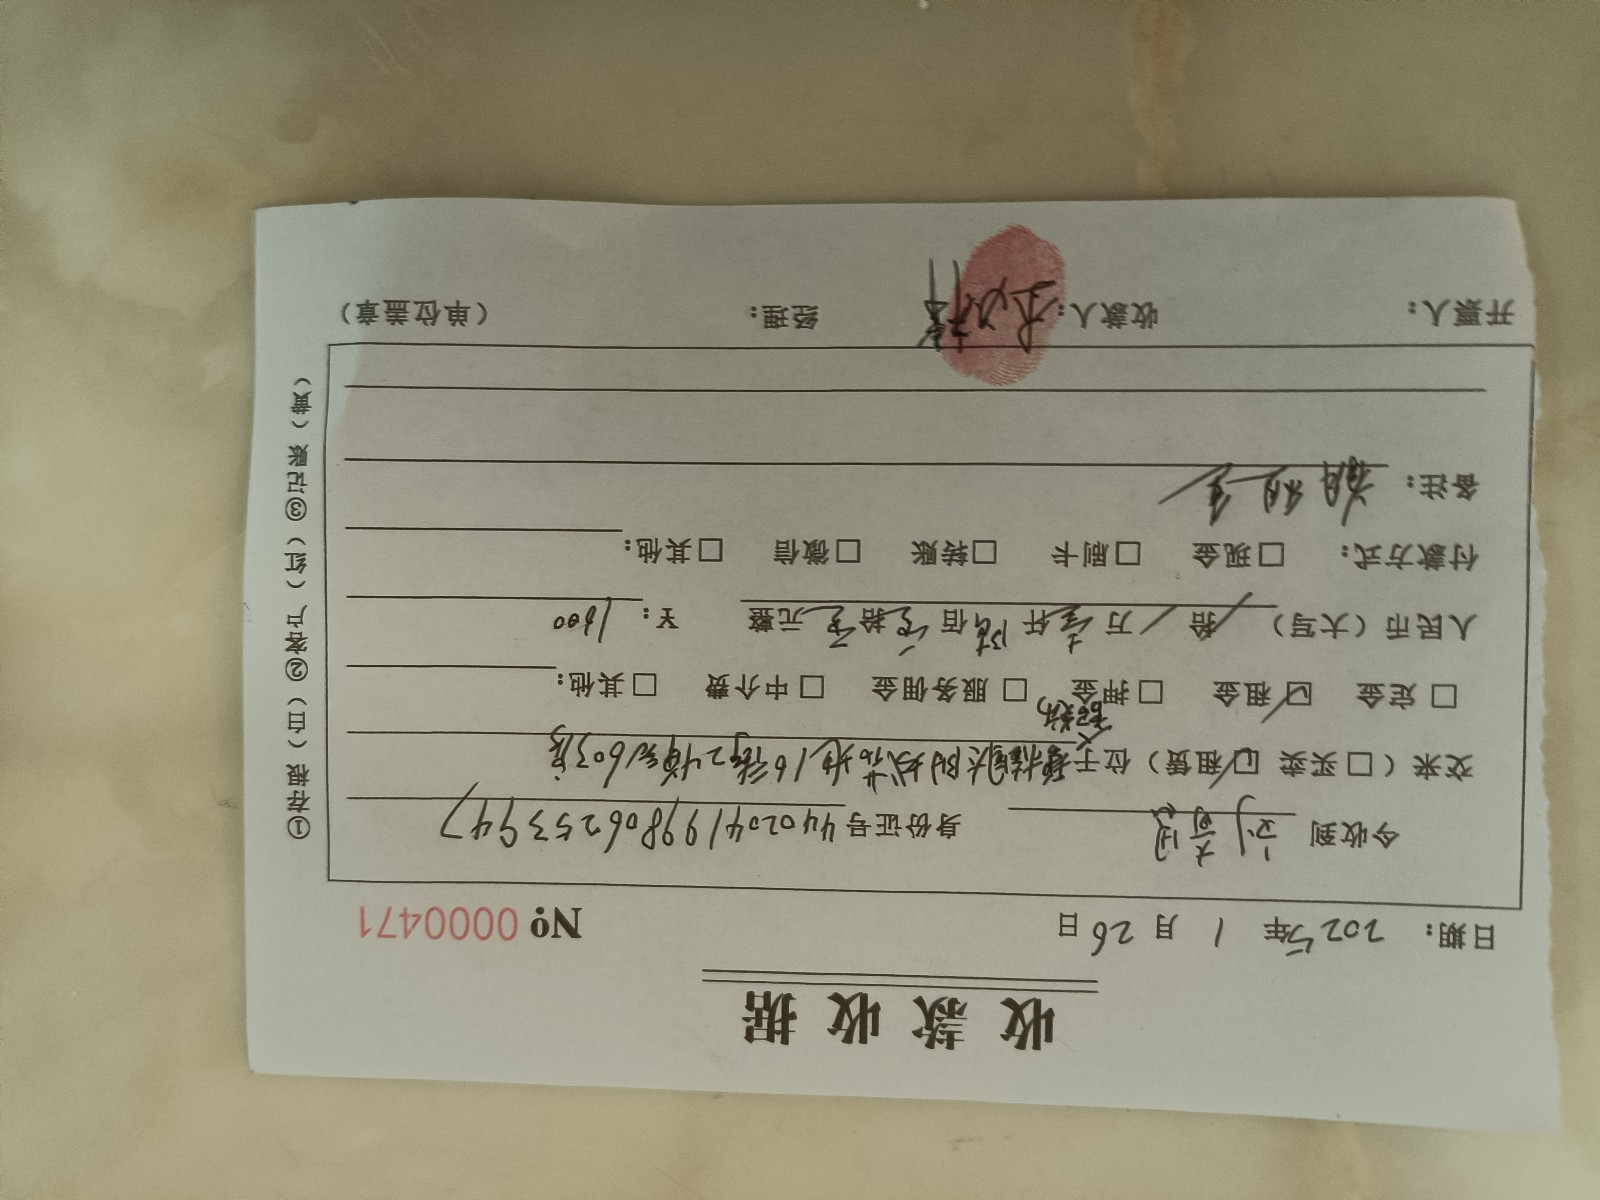 收款收据
日期： 2025年 1 月 26 日 № 0000471
今收到 刘 身份证号 440204199806253947
交来（□买卖 ☑租赁）位于 太阳城花地16街2幢603房
□定金 ☑租金 □押金 □服务佣金 □中介费 □其他：
人民币（大写） / 拾 / 万 壹仟 陆佰 零拾 零元整 ￥： 1600
付款方式： □现金 □刷卡 □转账 □微信 □其他：
备注： 租金
开票人： 收款人： 经理： （单位盖章）
①存根（白）②客户（红）③记账（黄）